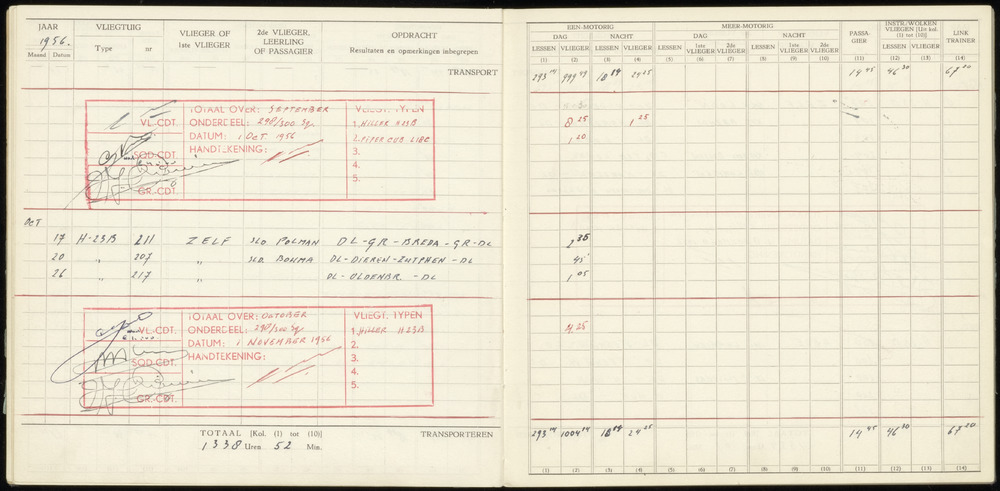 JAAR
VLIEGTUIG
VLIEGER OF
1ste VLIEGER
2de VLIEGER,
LEERLING
OF PASSAGIER
OPDRACHT
Resultaten en opmerkingen inbegrepen
1956.
Maand Datum
Type nr
TRANSPORT
TOTAAL OVER: SEPTEMBER
VLIEGT. TYPEN
VL.-CDT.
ONDERDEEL: 298/300 Sq.
1. HILLER H23B
DATUM: 1 OCT 1956
2. PIPER CUB L18C
SQD-CDT.
HANDTEKENING:
3.
4.
GR.-CDT.
5.
OCT
17 H-23B 211 ZELF SLD. POLMAN DL-GR-BREDA-GR-DL
20 " 207 " SLD. BOUMA DL-DIEREN-ZUTPHEN-DL
26 " 217 " DL-OLDENBR.-DL
TOTAAL OVER: OCTOBER
VLIEGT. TYPEN
VL.-CDT.
ONDERDEEL: 298/300 Sq.
1. HILLER H23B
DATUM: 1 NOVEMBER 1956
2.
SQD-CDT.
HANDTEKENING:
3.
4.
GR.-CDT.
5.
TOTAAL [Kol. (1) tot (10)]
TRANSPORTEREN
1338 Uren 52 Min.
EEN-MOTORIG
MEER-MOTORIG
DAG NACHT DAG NACHT
PASSA-
GIER
INSTR./WOLKEN
VLIEGEN [Uit kol.
(1) tot (10)]
LINK
TRAINER
LESSEN VLIEGER LESSEN VLIEGER LESSEN 1ste VLIEGER 2de VLIEGER LESSEN 1ste VLIEGER 2de VLIEGER LESSEN VLIEGER
(1) (2) (3) (4) (5) (6) (7) (8) (9) (10) (11) (12) (13) (14)
293 999 18 14 45 46 30 67 20
8 25 1 25
1 20
2 35
45
1 05
4 25
293 1004 18 24 25 14 45 46 30 67 20
(1) (2) (3) (4) (5) (6) (7) (8) (9) (10) (11) (12) (13) (14)